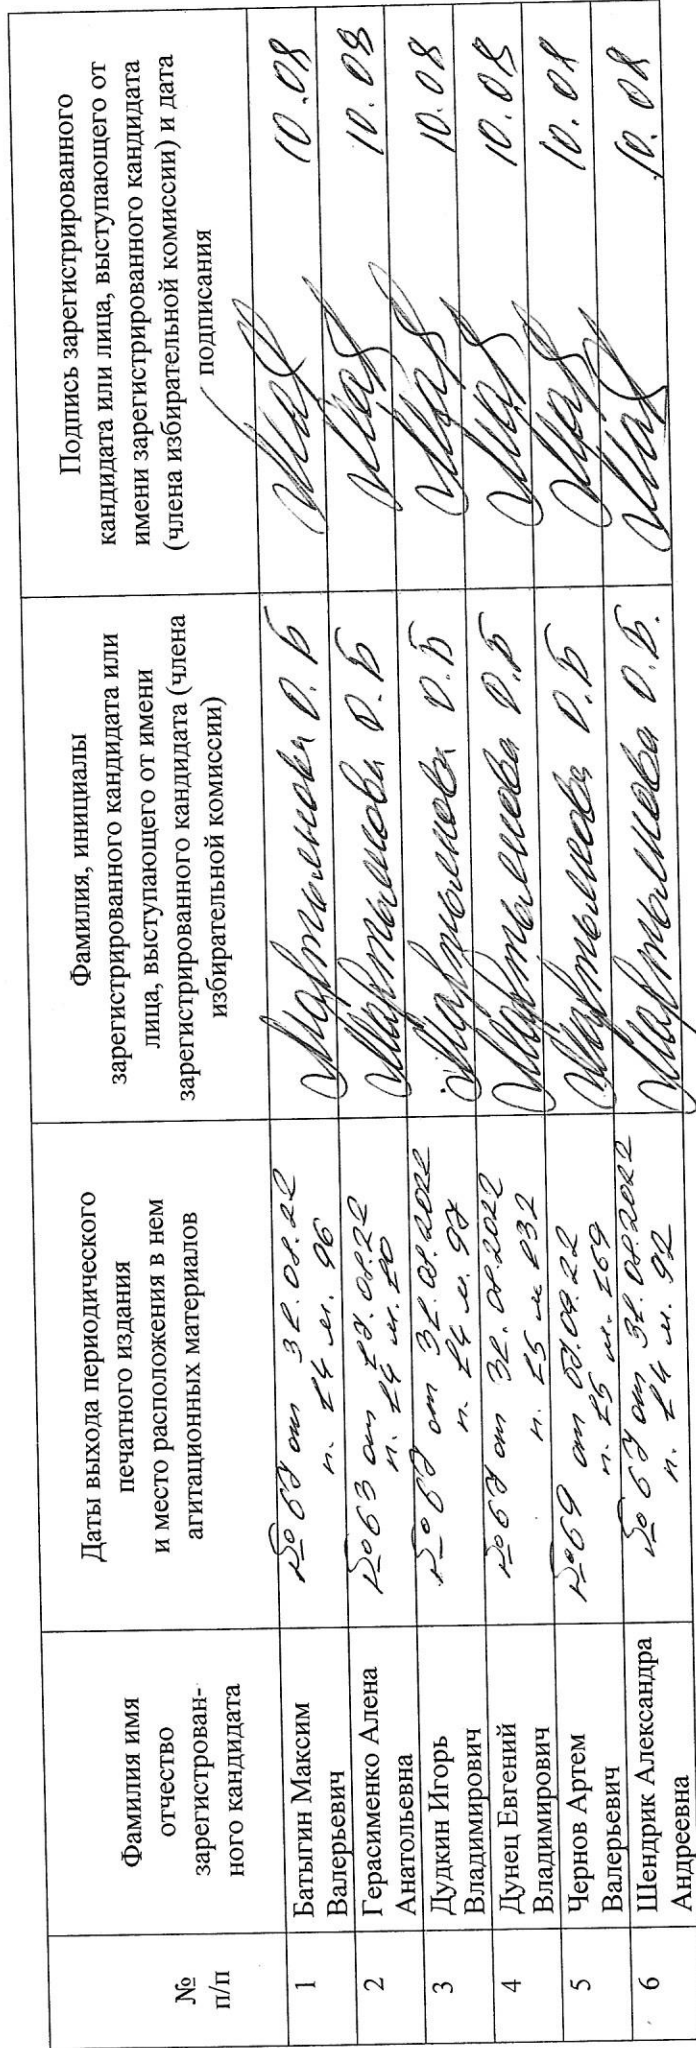 №
п/п
Фамилия имя
отчество
зарегистрирован-
ного кандидата
Даты выхода периодического
печатного издания
и место расположения в нем
агитационных материалов
Фамилия, инициалы
зарегистрированного кандидата или
лица, выступающего от имени
зарегистрированного кандидата (члена
избирательной комиссии)
Подпись зарегистрированного
кандидата или лица, выступающего от
имени зарегистрированного кандидата
(члена избирательной комиссии) и дата
подписания
1
Батыгин Максим
Валерьевич
№ 67 от 31.08.22
п. 14 м. 96
Мартынова О.Б
10.08
2
Герасименко Алена
Анатольевна
№ 63 от 17.08.22
п. 14 м. 10
Мартынова О.Б
10.08
3
Дудкин Игорь
Владимирович
№ 67 от 31.08.2022
п. 14 м. 97
Мартынова О.Б
10.08
4
Дунец Евгений
Владимирович
№ 67 от 31.08.2022
п. 15 м. 132
Мартынова О.Б
10.08
5
Чернов Артем
Валерьевич
№ 69 от 07.09.22
п. 15 м. 169
Мартынова О.Б
10.08
6
Шендрик Александра
Андреевна
№ 67 от 31.08.2022
п. 14 м. 92
Мартынова О.Б.
10.08